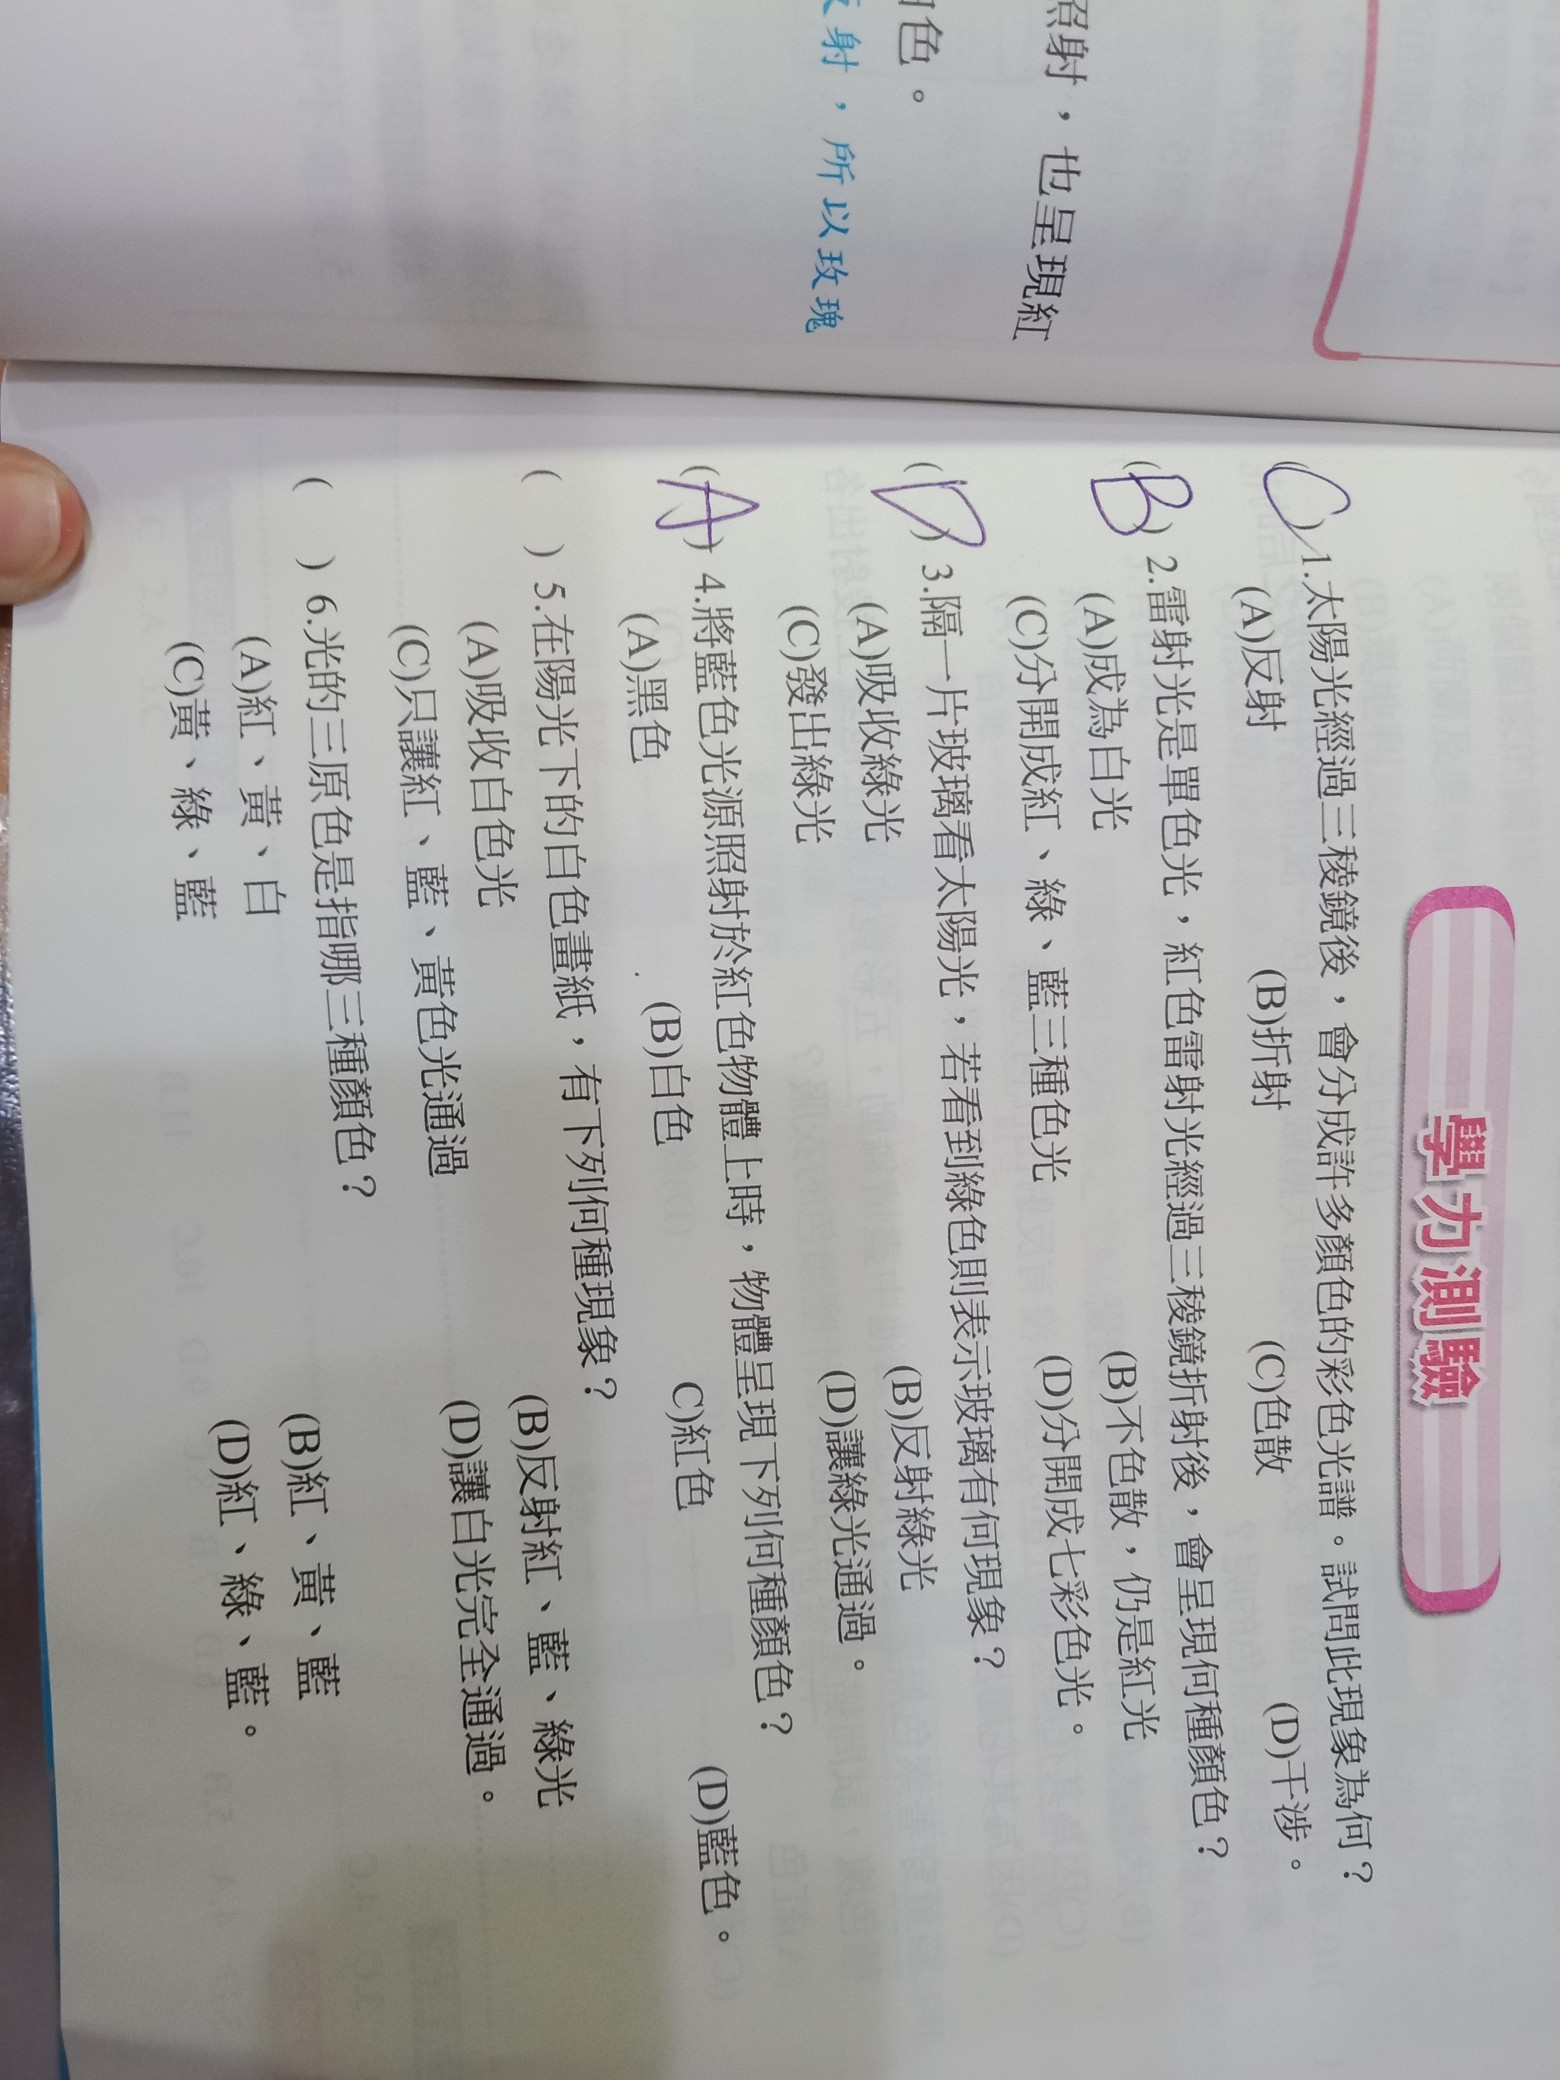 照射，也呈現紅
色。
反射，所以玫瑰
學力測驗
(C)1.太陽光經過三稜鏡後，會分成許多顏色的彩色光譜。試問此現象為何？
(A)反射 (B)折射 (C)色散 (D)干涉。
(B)2.雷射光是單色光，紅色雷射光經過三稜鏡折射後，會呈現何種顏色？
(A)成為白光 (B)不色散，仍是紅光
(C)分開成紅、綠、藍三種色光 (D)分開成七彩色光。
(D)3.隔一片玻璃看太陽光，若看到綠色則表示玻璃有何現象？
(A)吸收綠光 (B)反射綠光
(C)發出綠光 (D)讓綠光通過。
(A)4.將藍色光源照射於紅色物體上時，物體呈現下列何種顏色？
(A)黑色 (B)白色 C)紅色 (D)藍色。
( )5.在陽光下的白色畫紙，有下列何種現象？
(A)吸收白色光 (B)反射紅、藍、綠光
(C)只讓紅、藍、黃色光通過 (D)讓白光完全通過。
( )6.光的三原色是指哪三種顏色？
(A)紅、黃、白 (B)紅、黃、藍
(C)黃、綠、藍 (D)紅、綠、藍。